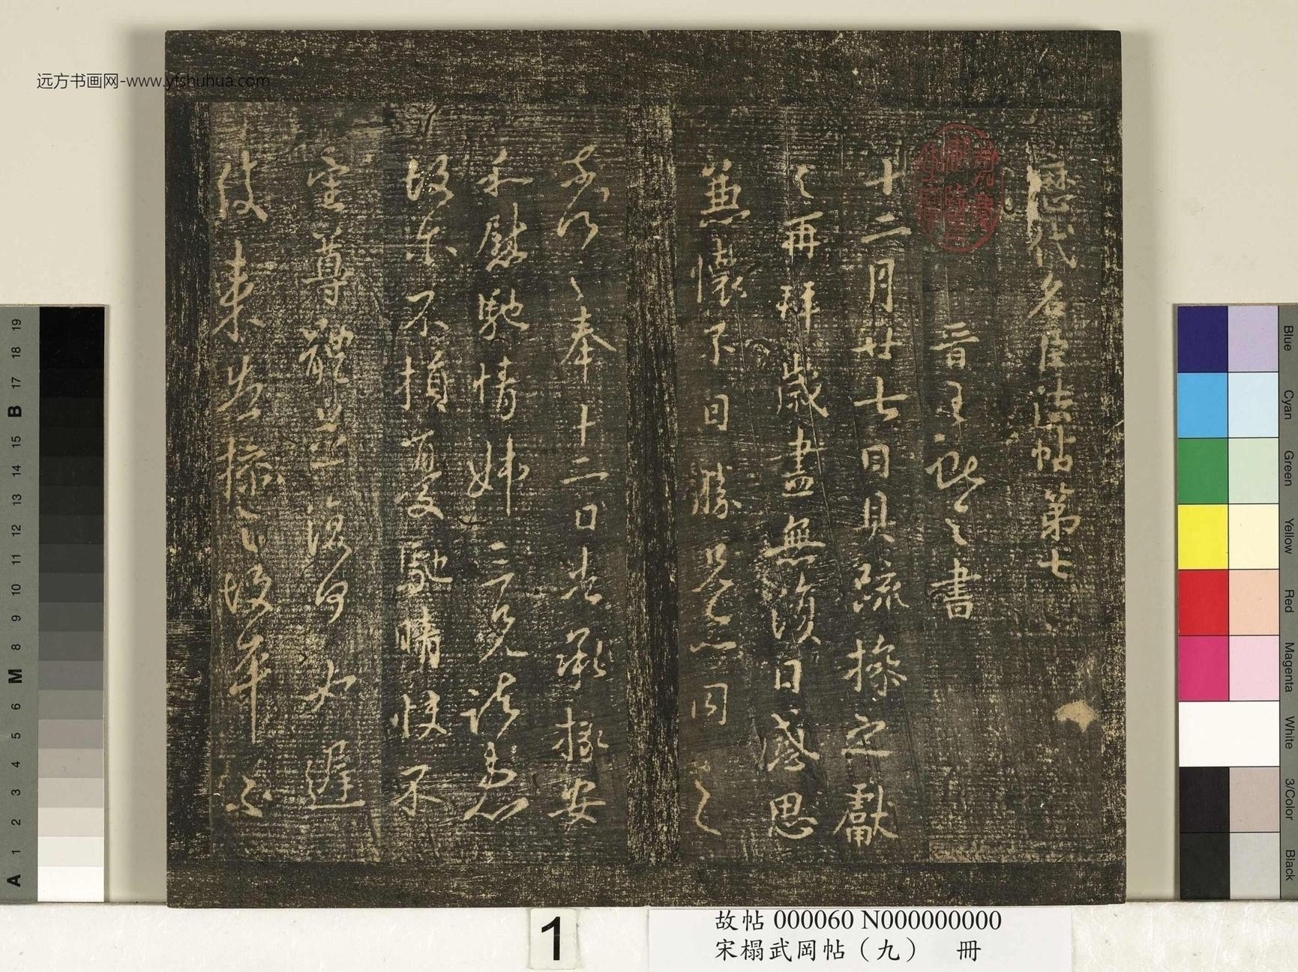 歷代名臣法帖第七
晉王獻之書
十二月廿七日具疏操之獻
之再拜歲盡無復日感思
兼懷不日勝 同之
奉十二日告承操安
和慰馳情姊 諸患
故爾不損憂馳情悵不
尊體 復何如遲
後來告操之故平
远方书画网-www.yfshuhua.com
1
故帖 000060 N000000000
宋榻武岡帖（九） 冊
Blue
Cyan
Green
Yellow
Red
Magenta
White
3/Color
Black
19
18
17
B
15
14
13
12
11
10
9
8
M
6
5
4
3
2
1
A